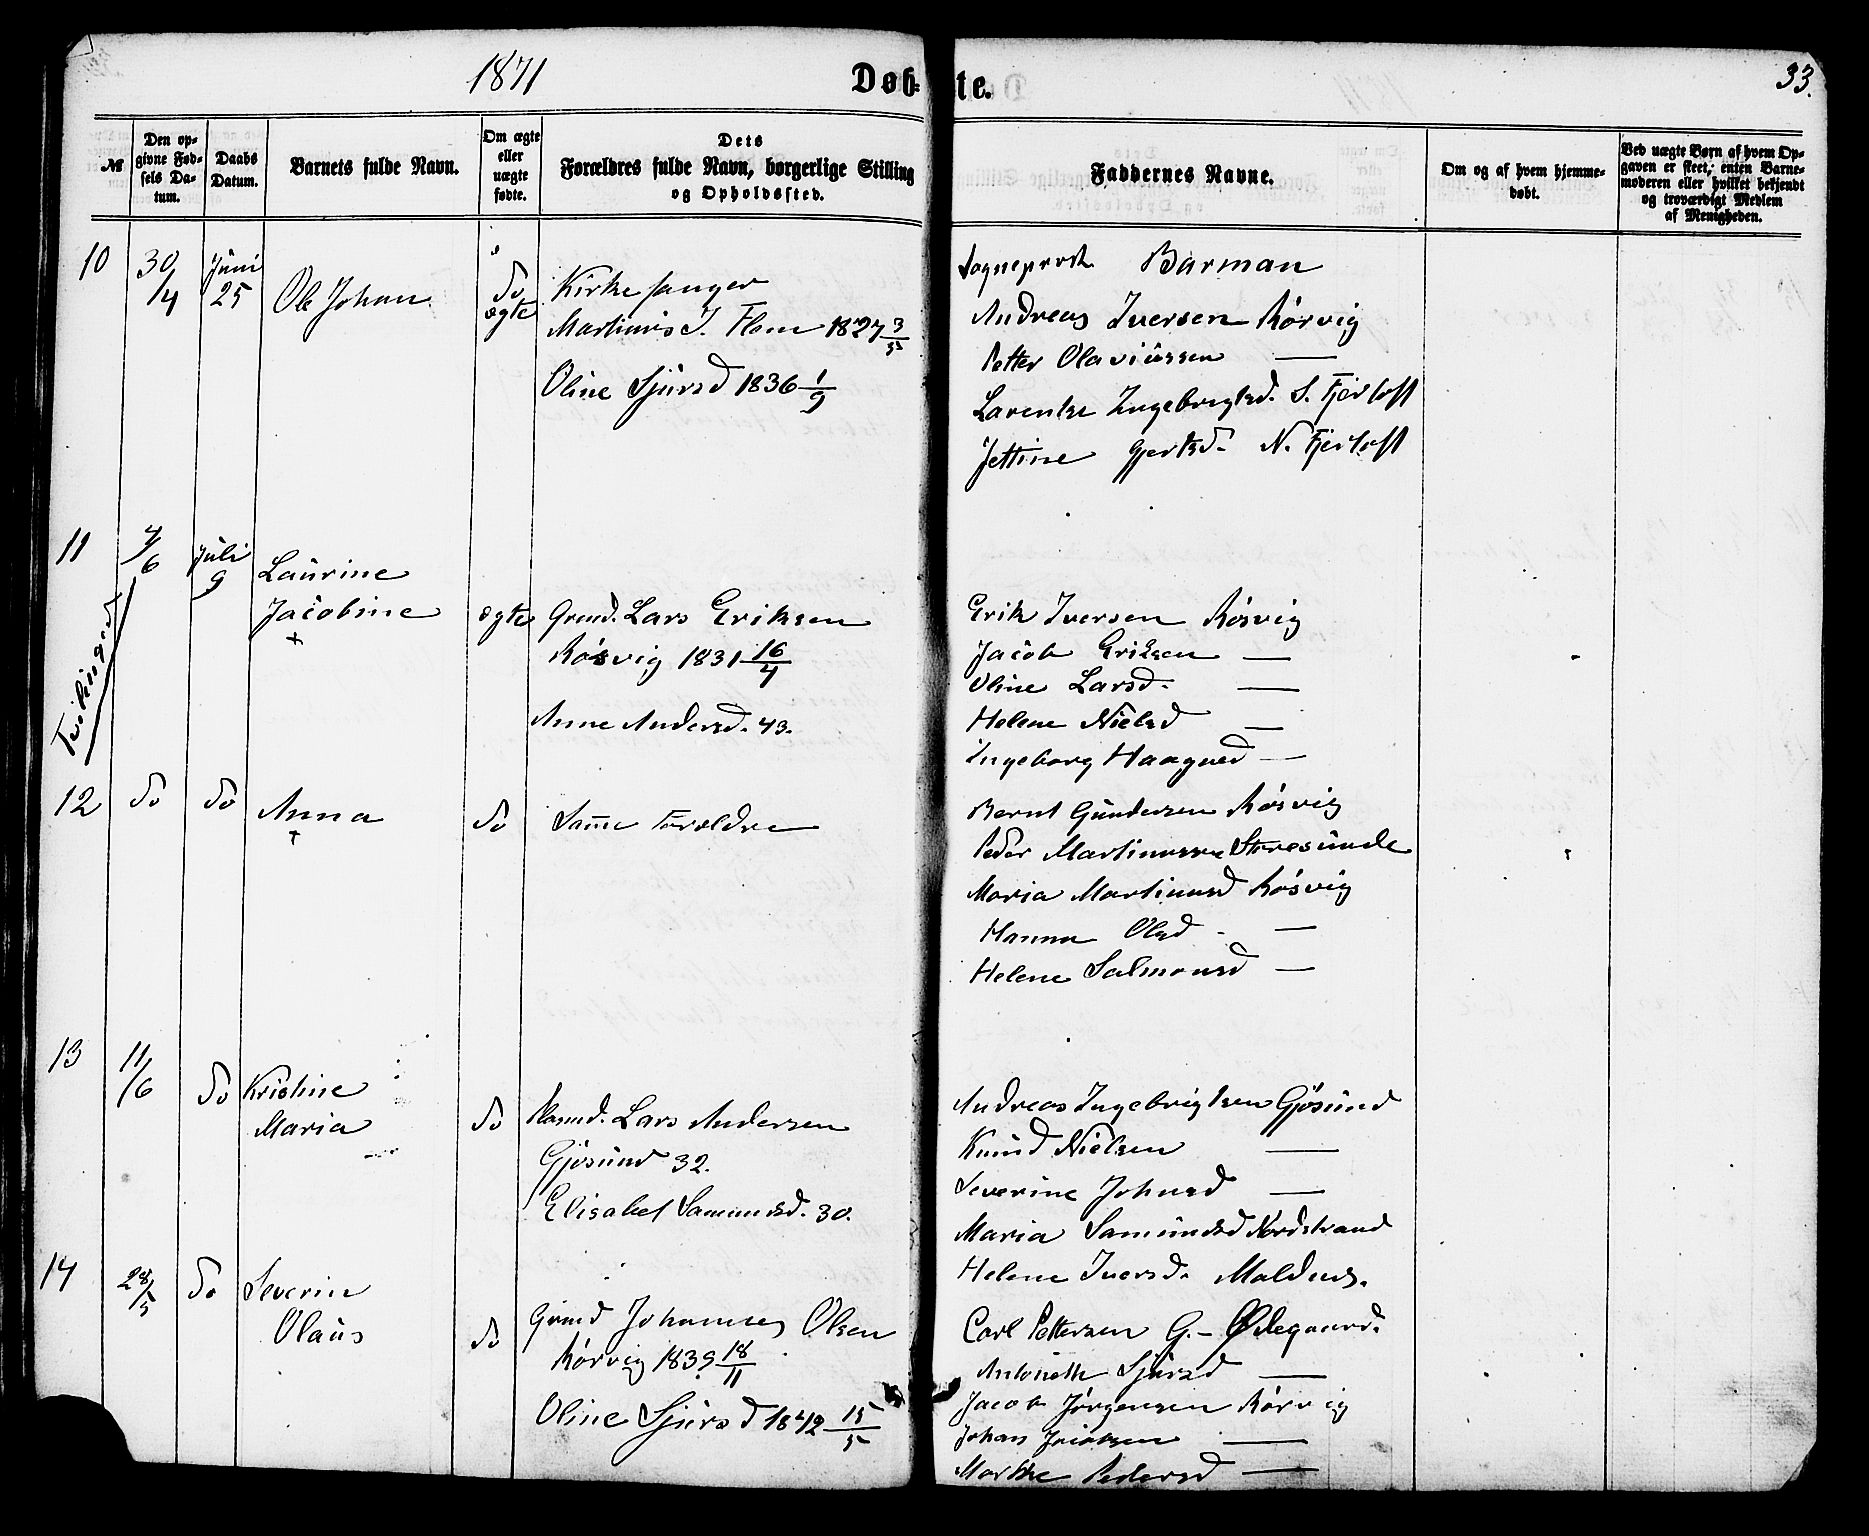 1871
Døbte.
33.
№
Den opgivne Fødsels Datum.
Daabs Datum.
Barnets fulde Navn.
Om ægte eller uægte fødte.
Dets Forældres fulde Navn, borgerlige Stilling og Opholdssted.
Faddernes Navne.
Om og af hvem hjemmedøbt.
Ved uægte Børn af hvem Opgaven er skeet; enten Barnemoderen eller hvilket bekjendt og troværdigt Medlem af Menigheden.
10
30/4
Juni 25
Ole Johan
do ægte
Kirkesanger
Martinus J. Flem 1827 3/5
Oline Sjursd 1836 1/9
Sogneprest Barman
Andreas Iversen Rørvig
Petter Olaviussen —
Larentse Ingebregtsd. S. Fjertoft
Jettine Gjertsd. N. Fjertoft
11
4/6
Juli 9
Laurine
Jacobine
+
Tvillinger
ægte
Grmd. Lars Eriksen
Røsvig 1831 16/4
Anne Andersd. 43.
Erik Iversen Røsvig
Jacob Eriksen —
Oline Larsd. —
Helene Nielsd —
Ingeborg Haagnsd —
12
do
do
Anna
+
do
Samme Forældre
Bernt Gundersen Røsvig
Peder Martinussen Storesunde
Maria Martinusd Røsvig
Hanna Olsd. —
Helene Salmonsd —
13
11/6
do
Kristine
Maria
do
Lars Andersen
Gjøsund 32.
Elisabet Samundsd. 30.
Andreas Ingebrigtsen Gjøsund
Knud Nielsen —
Severine Johnsd —
Maria Samundsd Nordstrand
Helene Iversd.
14
28/5
do
Severin
Olaus
do
Grmd Johannes Olsen
Rørvig 1839 18/11
Oline Sjursd 1842 15/5
Carl Pettersen G.- Ødegaard.
Antoneth Sjursd —
Jacob Jørgensen Rørvig
Johan Jacobsen —
Marthe Pedersd —